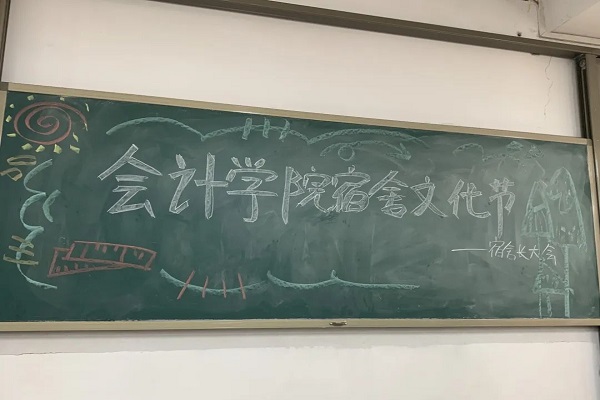 会计学院宿舍文化节
——宿舍长大会